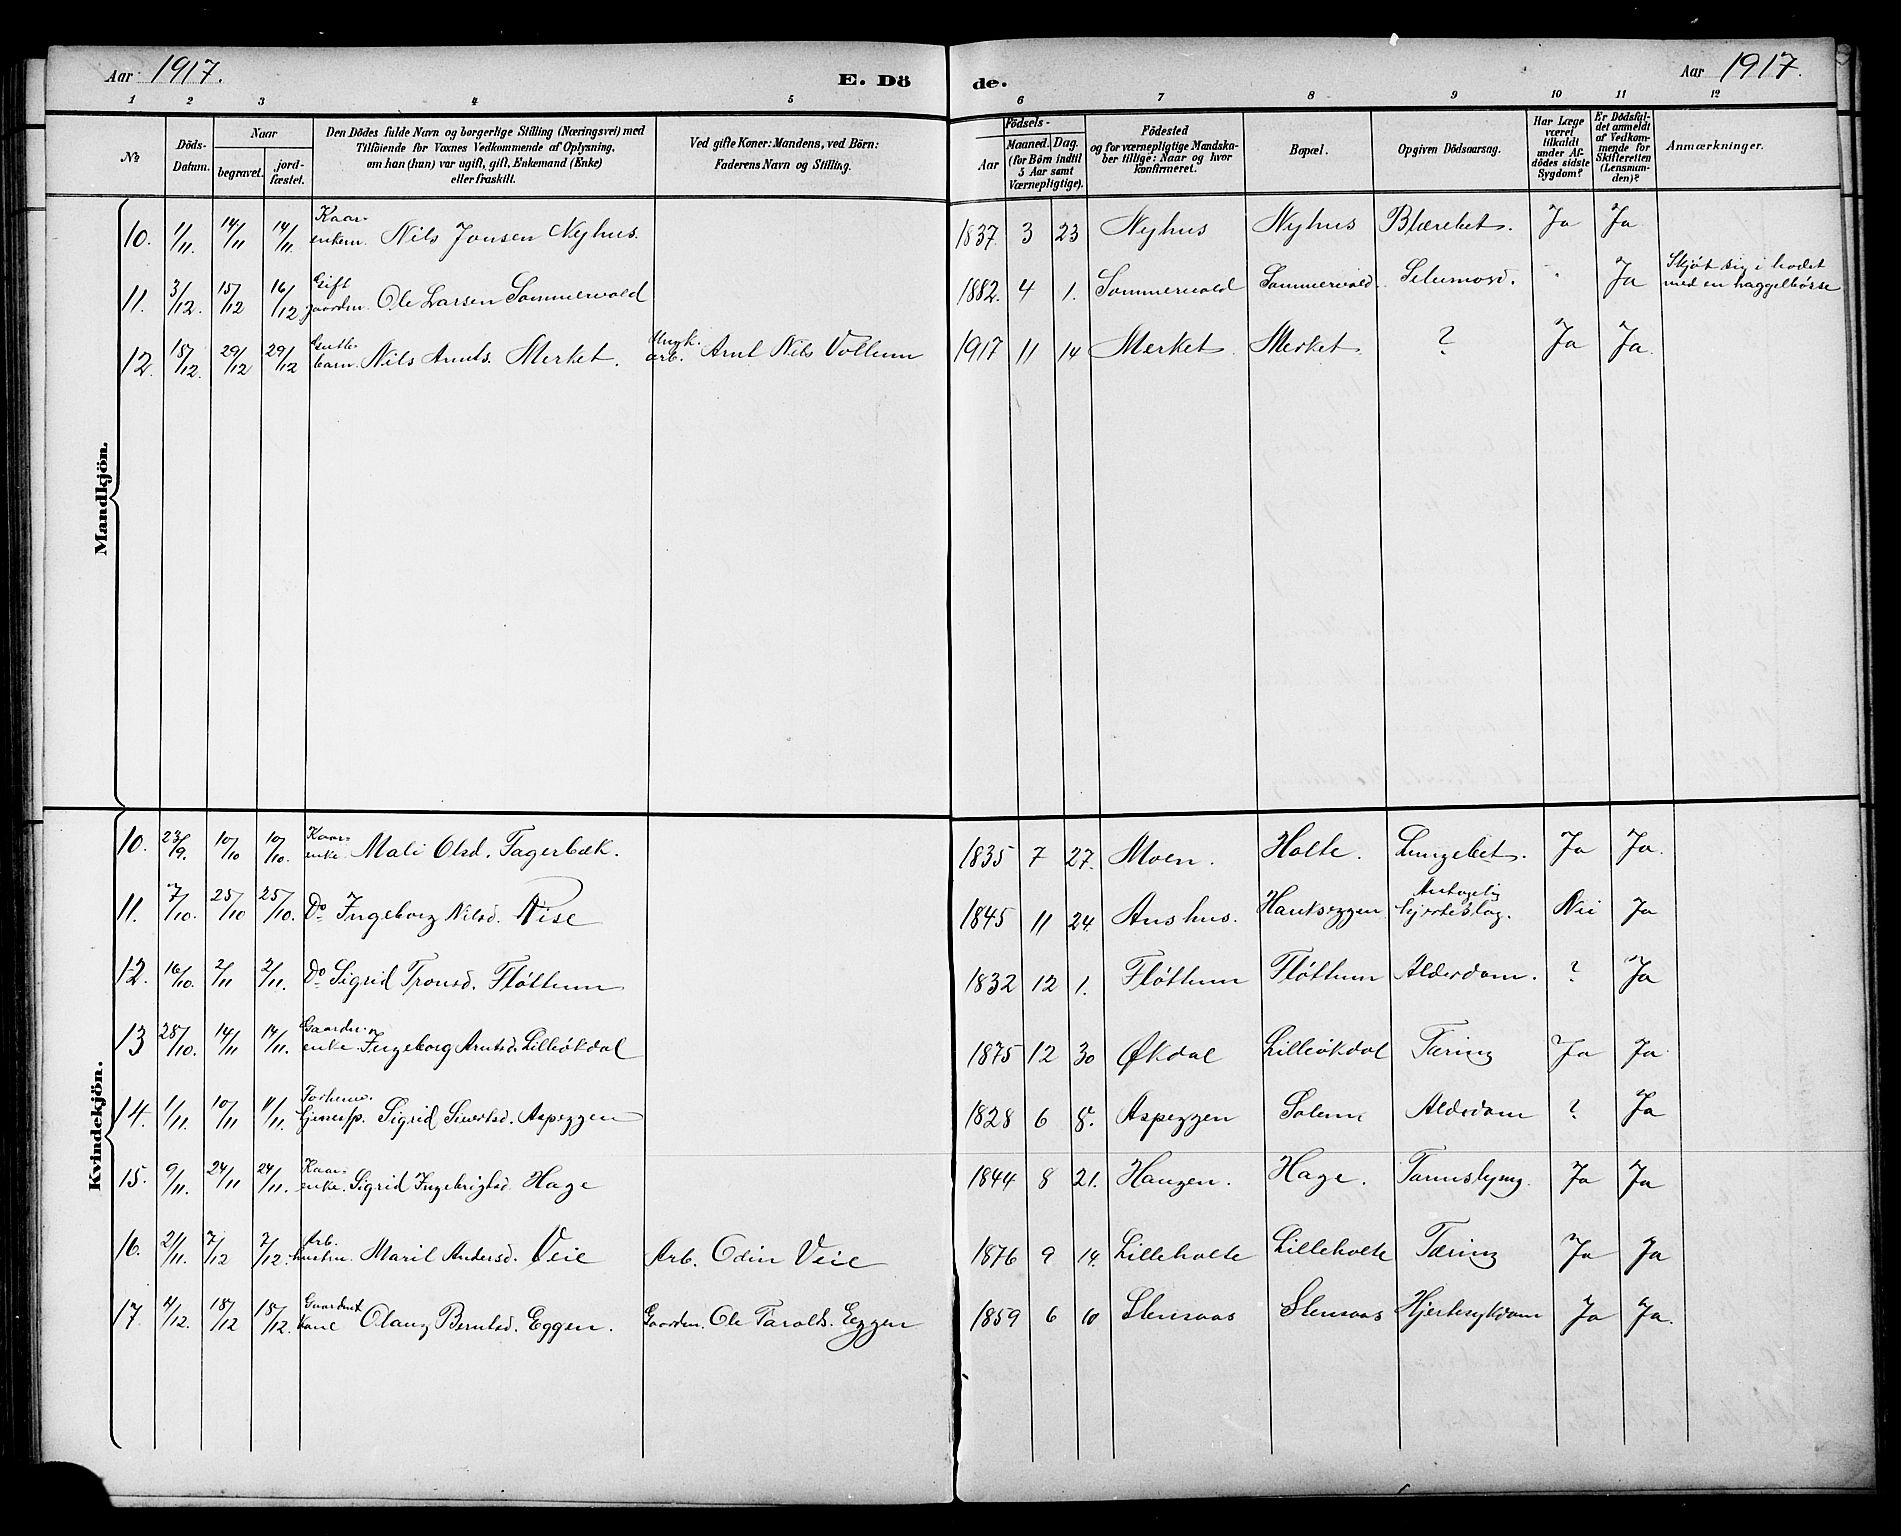 Aar 1917. E. Dö de. Aar 1917.
1 2 3 4 5 6 7 8 9 10 11 12
№
Döds-Datum.
Naar
begravet. jord-fæstet.
Den Dödes fulde Navn og borgerlige Stilling (Næringsvei) med
Tilföiende for Voxnes Vedkommende af Oplysning,
om han (hun) var ugift, gift, Enkemand (Enke)
eller fraskilt.
Ved gifte Koner: Mandens, ved Börn:
Faderens Navn og Stilling.
Födsels-
Aar
Maaned. Dag.
(for Börn indtil
5 Aar samt
Værnepligtige).
Födested
og for værnepligtige Mandska-
ber tillige: Naar og hvor
konfirmeret.
Bopæl.
Opgiven Dödsaarsag.
Har Læge
været
tilkaldt
under Af-
dödes sidste
Sygdom?
Er Dödsfal-
det anmeldt
af Vedkom-
mende for
Skifteretten
(Lensman-
den)?
Anmærkninger.
Mandkjön.
10. 1/11. 14/11 14/11. Kaar-enkem. Nils Jonsen Nyhus. 1837 3 23 Nyhus Nyhus Blærebet. Ja Ja
11. 3/12. 15/12 16/12 Gift gaardm. Ole Larsen Sommervold 1882. 4 1. Sommervold Sommervold. Selvmord. " Ja Skjøt sig i hodet
med en haggelbørse
12. 15/12. 29/12 29/12 Gutte-barn. Nils Arnts. Merket. arb. Arnt Nils Vollum 1917 11 14 Merket. Merket. ? Ja Ja.
Kvindekjön.
10. 23/9. 10/10 10/10. Kaar-enke. Mali Olsd. Fagerbæk. 1835 7 27. Moen. Holte. Lungebet. Ja Ja.
11. 7/10. 25/10 25/10. Do Ingeborg Nilsd. Vise 1845 11 24. Aushus. Hauktseggen Antagelig hjerteslag. Nei Ja
12. 16/10. 2/11 2/11. Do Sigrid Tronsd. Fløttum 1832 12 1. Fløttum Fløttum Alderdom. ? Ja
13 28/10. 14/11 14/11. Gaardm.enke. Ingeborg Arntsd. Lilleøkdal 1875 12 30 Økdal Lilleøkdal Tæring Ja Ja
14. 1/11. 10/11 11/11. Forhenv. tjenestp. Sigrid Sivertsd. Aspeggen 1828 6 8. Aspeggen Solem Alderdom ? Ja
15. 9/11. 24/11 24/11. Kaar-enke. Sigrid Ingebrigtsd. Hage 1844 8 21. Haugen. Hage. Tarmslyng. Ja Ja
16. 21/11. 7/12 7/12. Arb. hustru. Marit Andersd. Veie Arb. Odin Veie 1876 9 14. Lilleholte Lilleholte Tæring Ja Ja
17. 4/12. 18/12 18/12. Gaardmd. kone Olaug Berntsd. Eggen. Gaardm. Ole Taralds. Eggen 1859 6 10 Stensaas Stensaas Hjertesykdom Ja Ja.